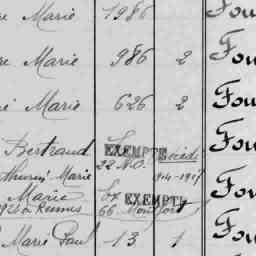 Marie 1986 Fou
Marie 986 2 Fou
Marie 626 2 Fou
Bertrand EXEMPTÉ décédé Fou
22 A.O. 1914-1917
Marie
Marie EXEMPTÉ Fou
à Rennes 66 Montfort
Marie Paul 13 1 Fou